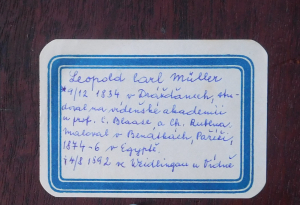 Leopold Carl Müller
*1/12 1834 v Drážďanech, stu-
doval na vídeňské akademii
u prof. C. Blaase a Ch. Rubena,
maloval v Benátkách, Paříži,
1874-6 v Egyptě.
†4/8 1892 ve Weidlingau u Vídně